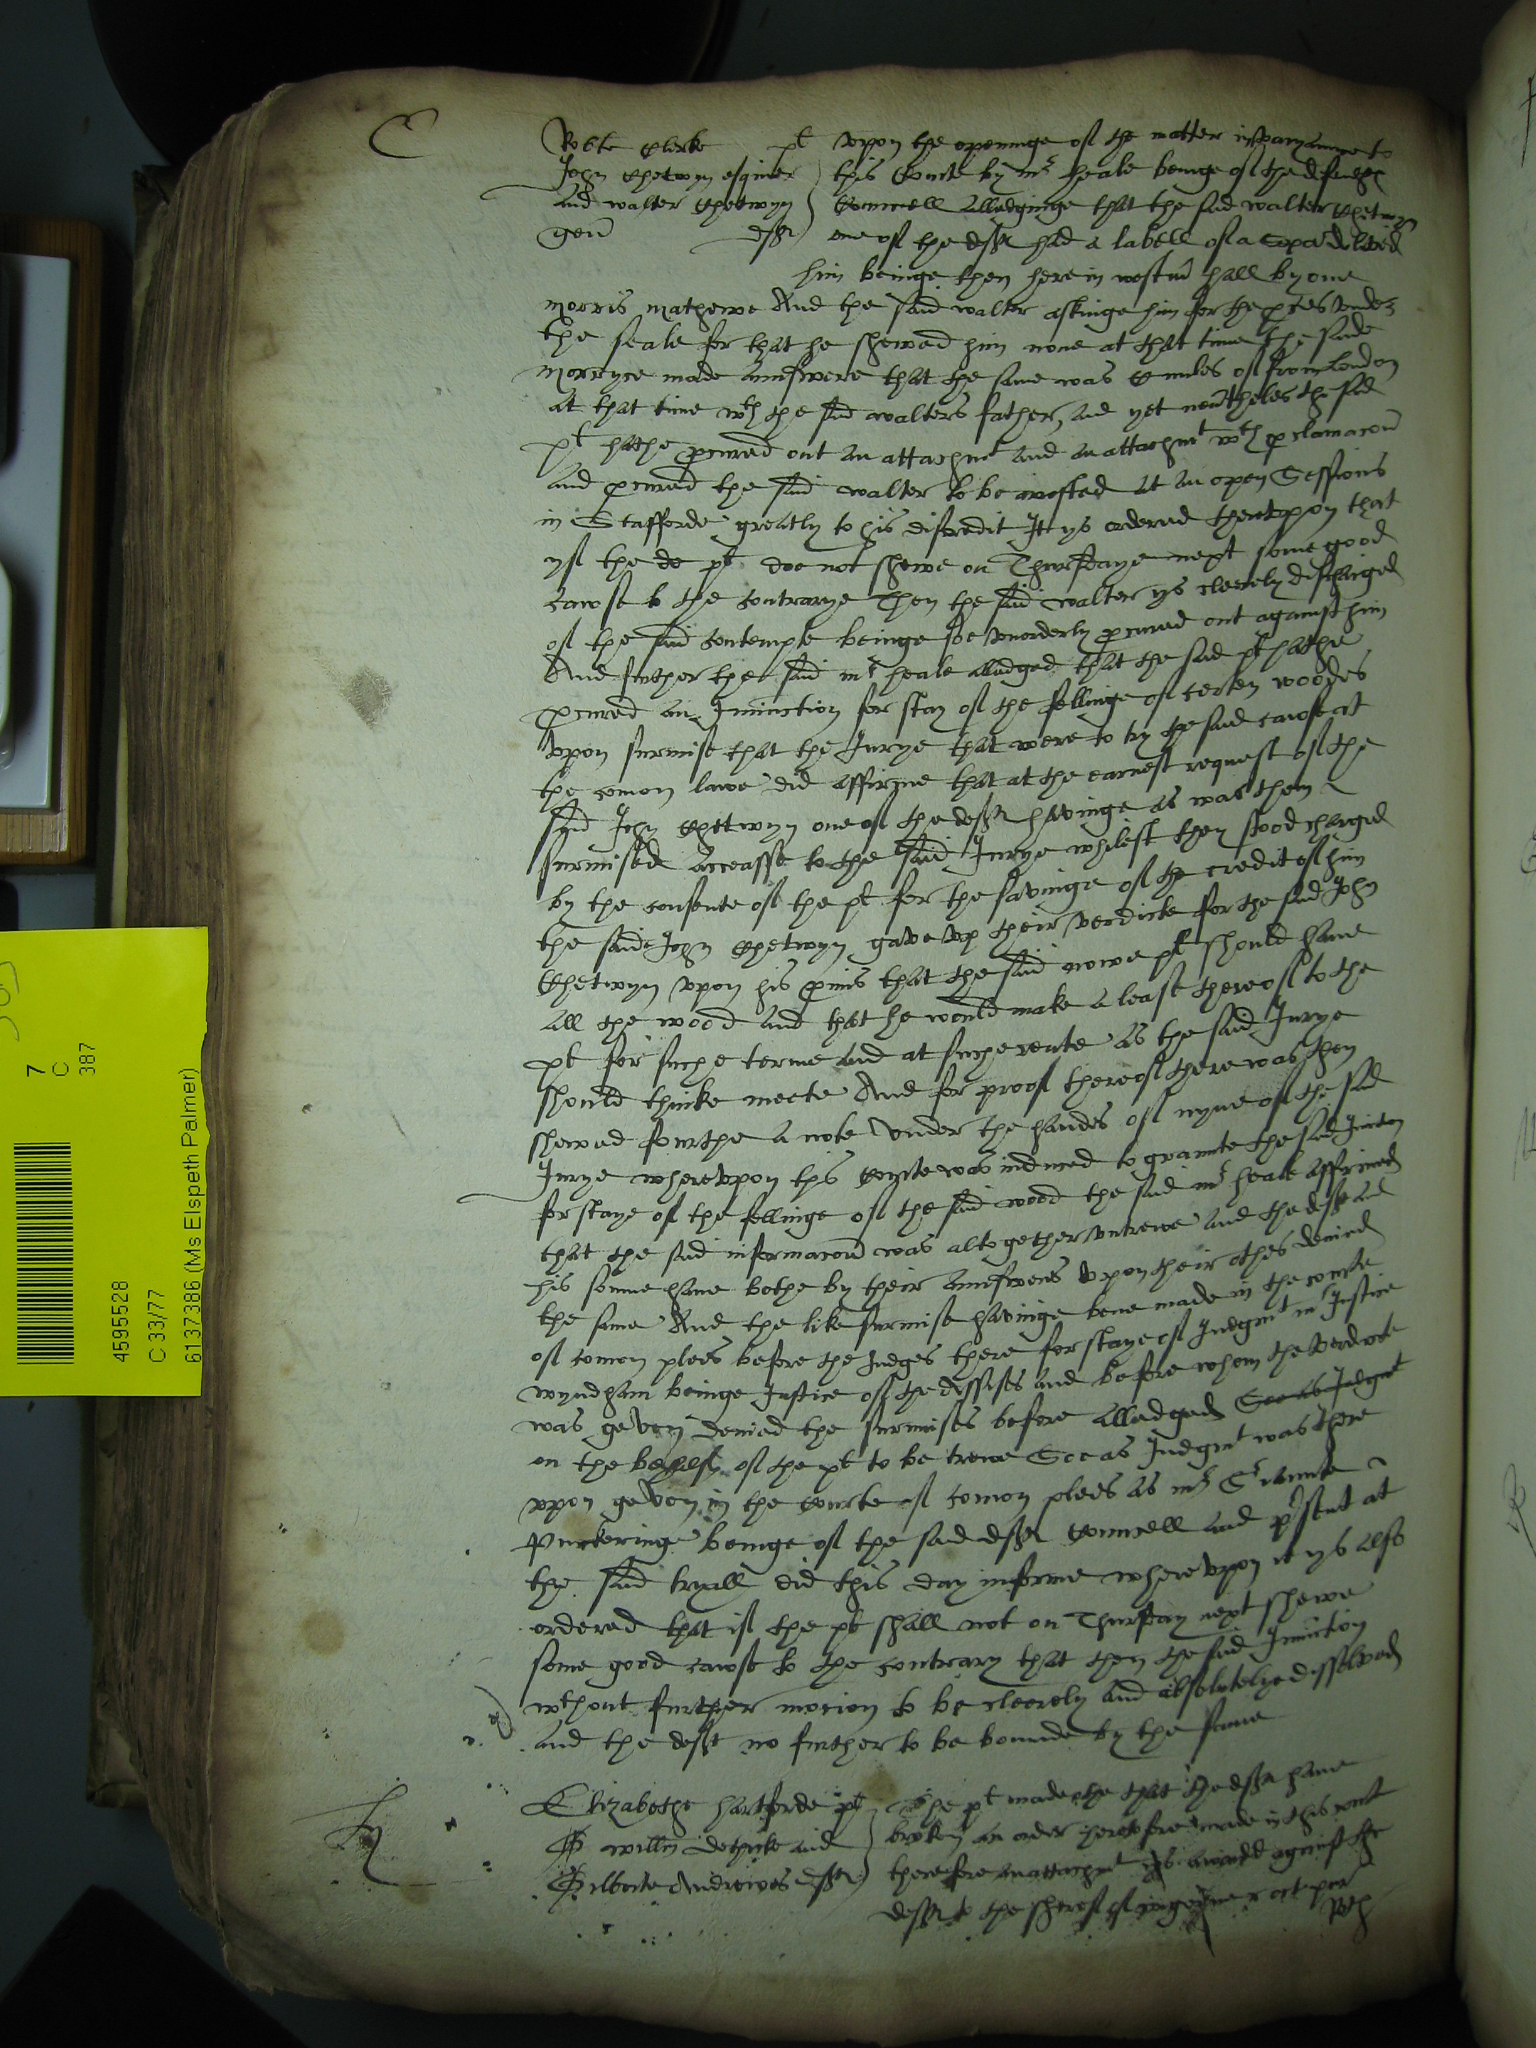 C
Robte Clerke plt
John Chetwyn esquier
and walter Chetwyn
gent deftes
vpon the openinge of the matter in
this Courte by mr heale beinge of the deftes
Councell alledginge that the said walter Chetwyn
one of the deftes had a labell of a Spa delived
him beinge then here in westm hall by one
morris mathewe And the said walter askinge him for the pces vnder
the seale for that he shewed him none at that time the saide
morryce made aunswere that the same was C miles of from London
at that time wth the said walters father, and yet nevtheles the said
plt hathe pcured out an attachmt and an attachmt wth pclamacon
and pcured the said walter to be arested at an open Sessions
in Stafforde greatly to his discredit It ys ordered therevpon that
yf the plt doe not shewe on Thursdaye next some good
cawse to the contrarye Then the said walter ys cleerely discharged
of the said contempte beinge soe vnorderly pcured out against him
And further the said mr heale alledged that the said plt hathe
pcured an Iniunction for stay of the fellinge of certen woodes
vpon surmise that the Jurye that were to try the said cawse at
the comon lawe did affirme that at the earnest request of the
said John Chetwyn one of the deftes havinge as was then
surmised accesse to the said Jurye whilest they stood charged
by the consente of the plt for the savinge of the credit of him
the said John Chetwyn gave vp their verdicte for the said John
Chetwyn vpon his pmis that the said nowe plt should have
all the wood and that he would make a lease thereof to the
plt for suche terme and at suche rente as the said Jurye
should thinke meete And for proof thereof there was then
shewed fourthe a note vnder the handes of nyne of the said
Jurye wherevpon this Courte was induced to graunte the said Iniuncton
for staye of the fellinge of the said wood the said mr heale affirmed
that the said informacon was altogether vntrewe and the defte and
his sonne have bothe by their aunsweres vpon their othes denied
the same And the like surmise havinge bene made in the courte
of comon plees before the Judges there for staye of Judgmt mr Justice
wyndham beinge Justice of the Assises and before whom the verdicte
was geven denied the surmises before alledged Soe as Judgmt
on the behelfe of the plt to be trewe Soe as Judgmt was there
vpon geven in the Courte of comon plees as mr Seriaunte
Puckeringe beinge of the said deftes Councell and psent at
the said tryall did this day informe wherevpon it ys also
ordered that if the plt shall not on Thursday next shewe
some good cawse to the contrary that then the said Iniuncton
wthout further mocion to be cleerely and absolutelye dissolved
and the defte no further to be bounde by the same
Elizabethe hartforde plt
willm dethicke and
Gilberte Andrewes deftes
The plt made othe that the deftes have
broken an order heretofore made in this court
therefore an attachmt ys awarded against the
deftes to the sheref of
4595528
C 33/77
6137386 (Ms Elspeth Palmer)
7
C
387